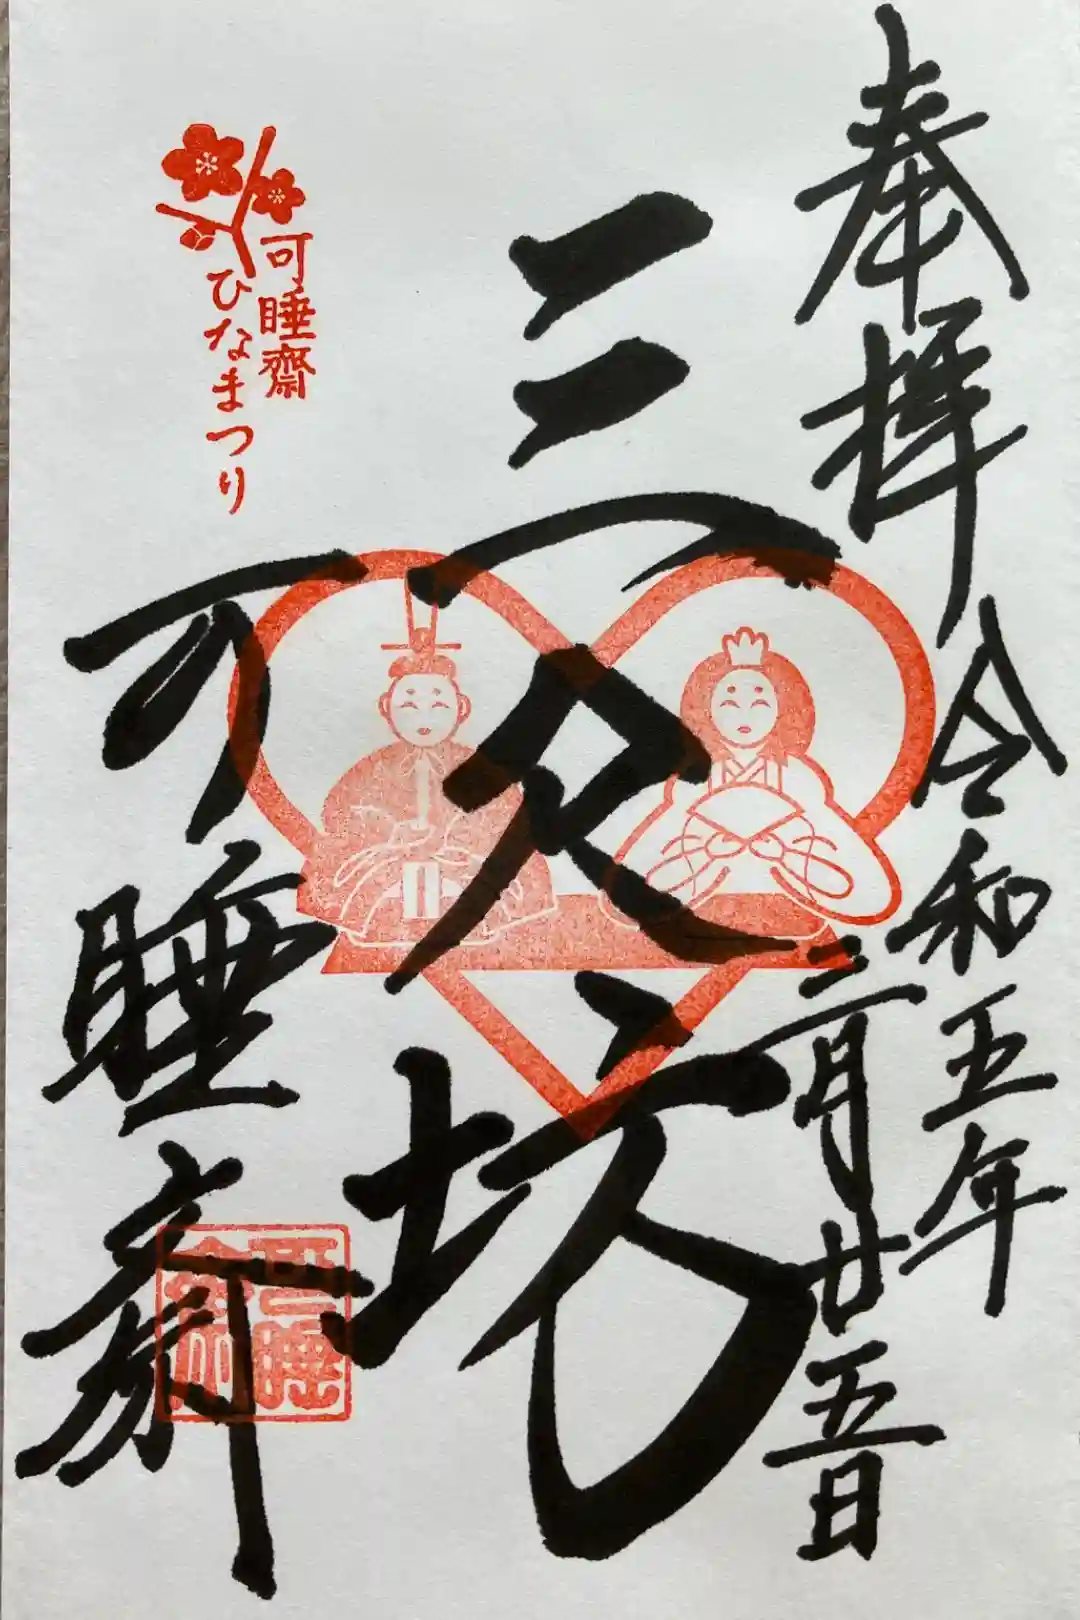 奉拝 令和五年
三月廿五日
三尺坊
可睡齋
可睡齋
ひなまつり